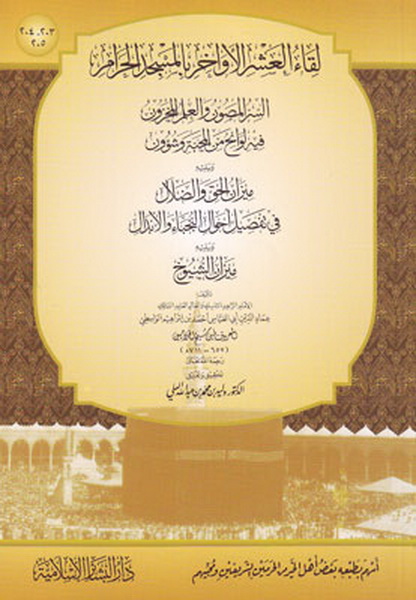 ٢٠٣ـ٢٠٤
٢٠٥
لقاء العشر الأواخر بالمسجد الحرام
السر المصون والعلم المخزون
فيه لوائح من المحبة وشؤون
ويليه
ميزان الحق والضلال
في تفصيل أحوال النجباء والأبدال
ويليه
ميزان الشيوخ
تأليف
عماد الدين أبي العباس أحمد بن إبراهيم الواسطي
(٦٥٧ - ٧١١هـ)
رحمه الله تعالى
تحقيق وتعليق
الدكتور وليد بن محمد بن عبد الله العلي
أسهم بطبعه بعض أهل الخير من الحرمين الشريفين ومحبيهم
دار البشائر الإسلامية